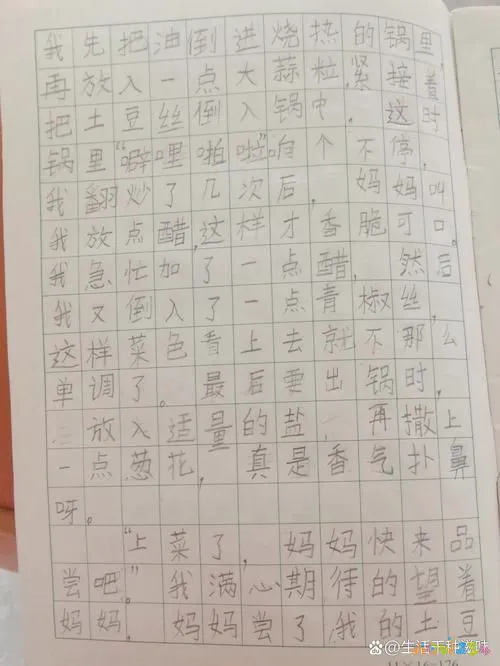 我先把油倒进烧热的锅里，
再放入一点大蒜粒，紧接着
把土豆丝倒入锅中，这时
锅里“噼哩啪啦”响个不停，
我翻炒了几次后，妈妈叫
我放点醋，这样才香脆可口。
我急忙加了一点醋，然后
我又倒入了一点青椒丝，
这样菜色看上去就不那么
单调了。最后要出锅时，
放入适量的盐，再撒上
一点葱花，真是香气扑鼻
呀。
“上菜了，妈妈快来品
尝吧。”我满心期待的望着
妈妈，妈妈尝了我的土豆